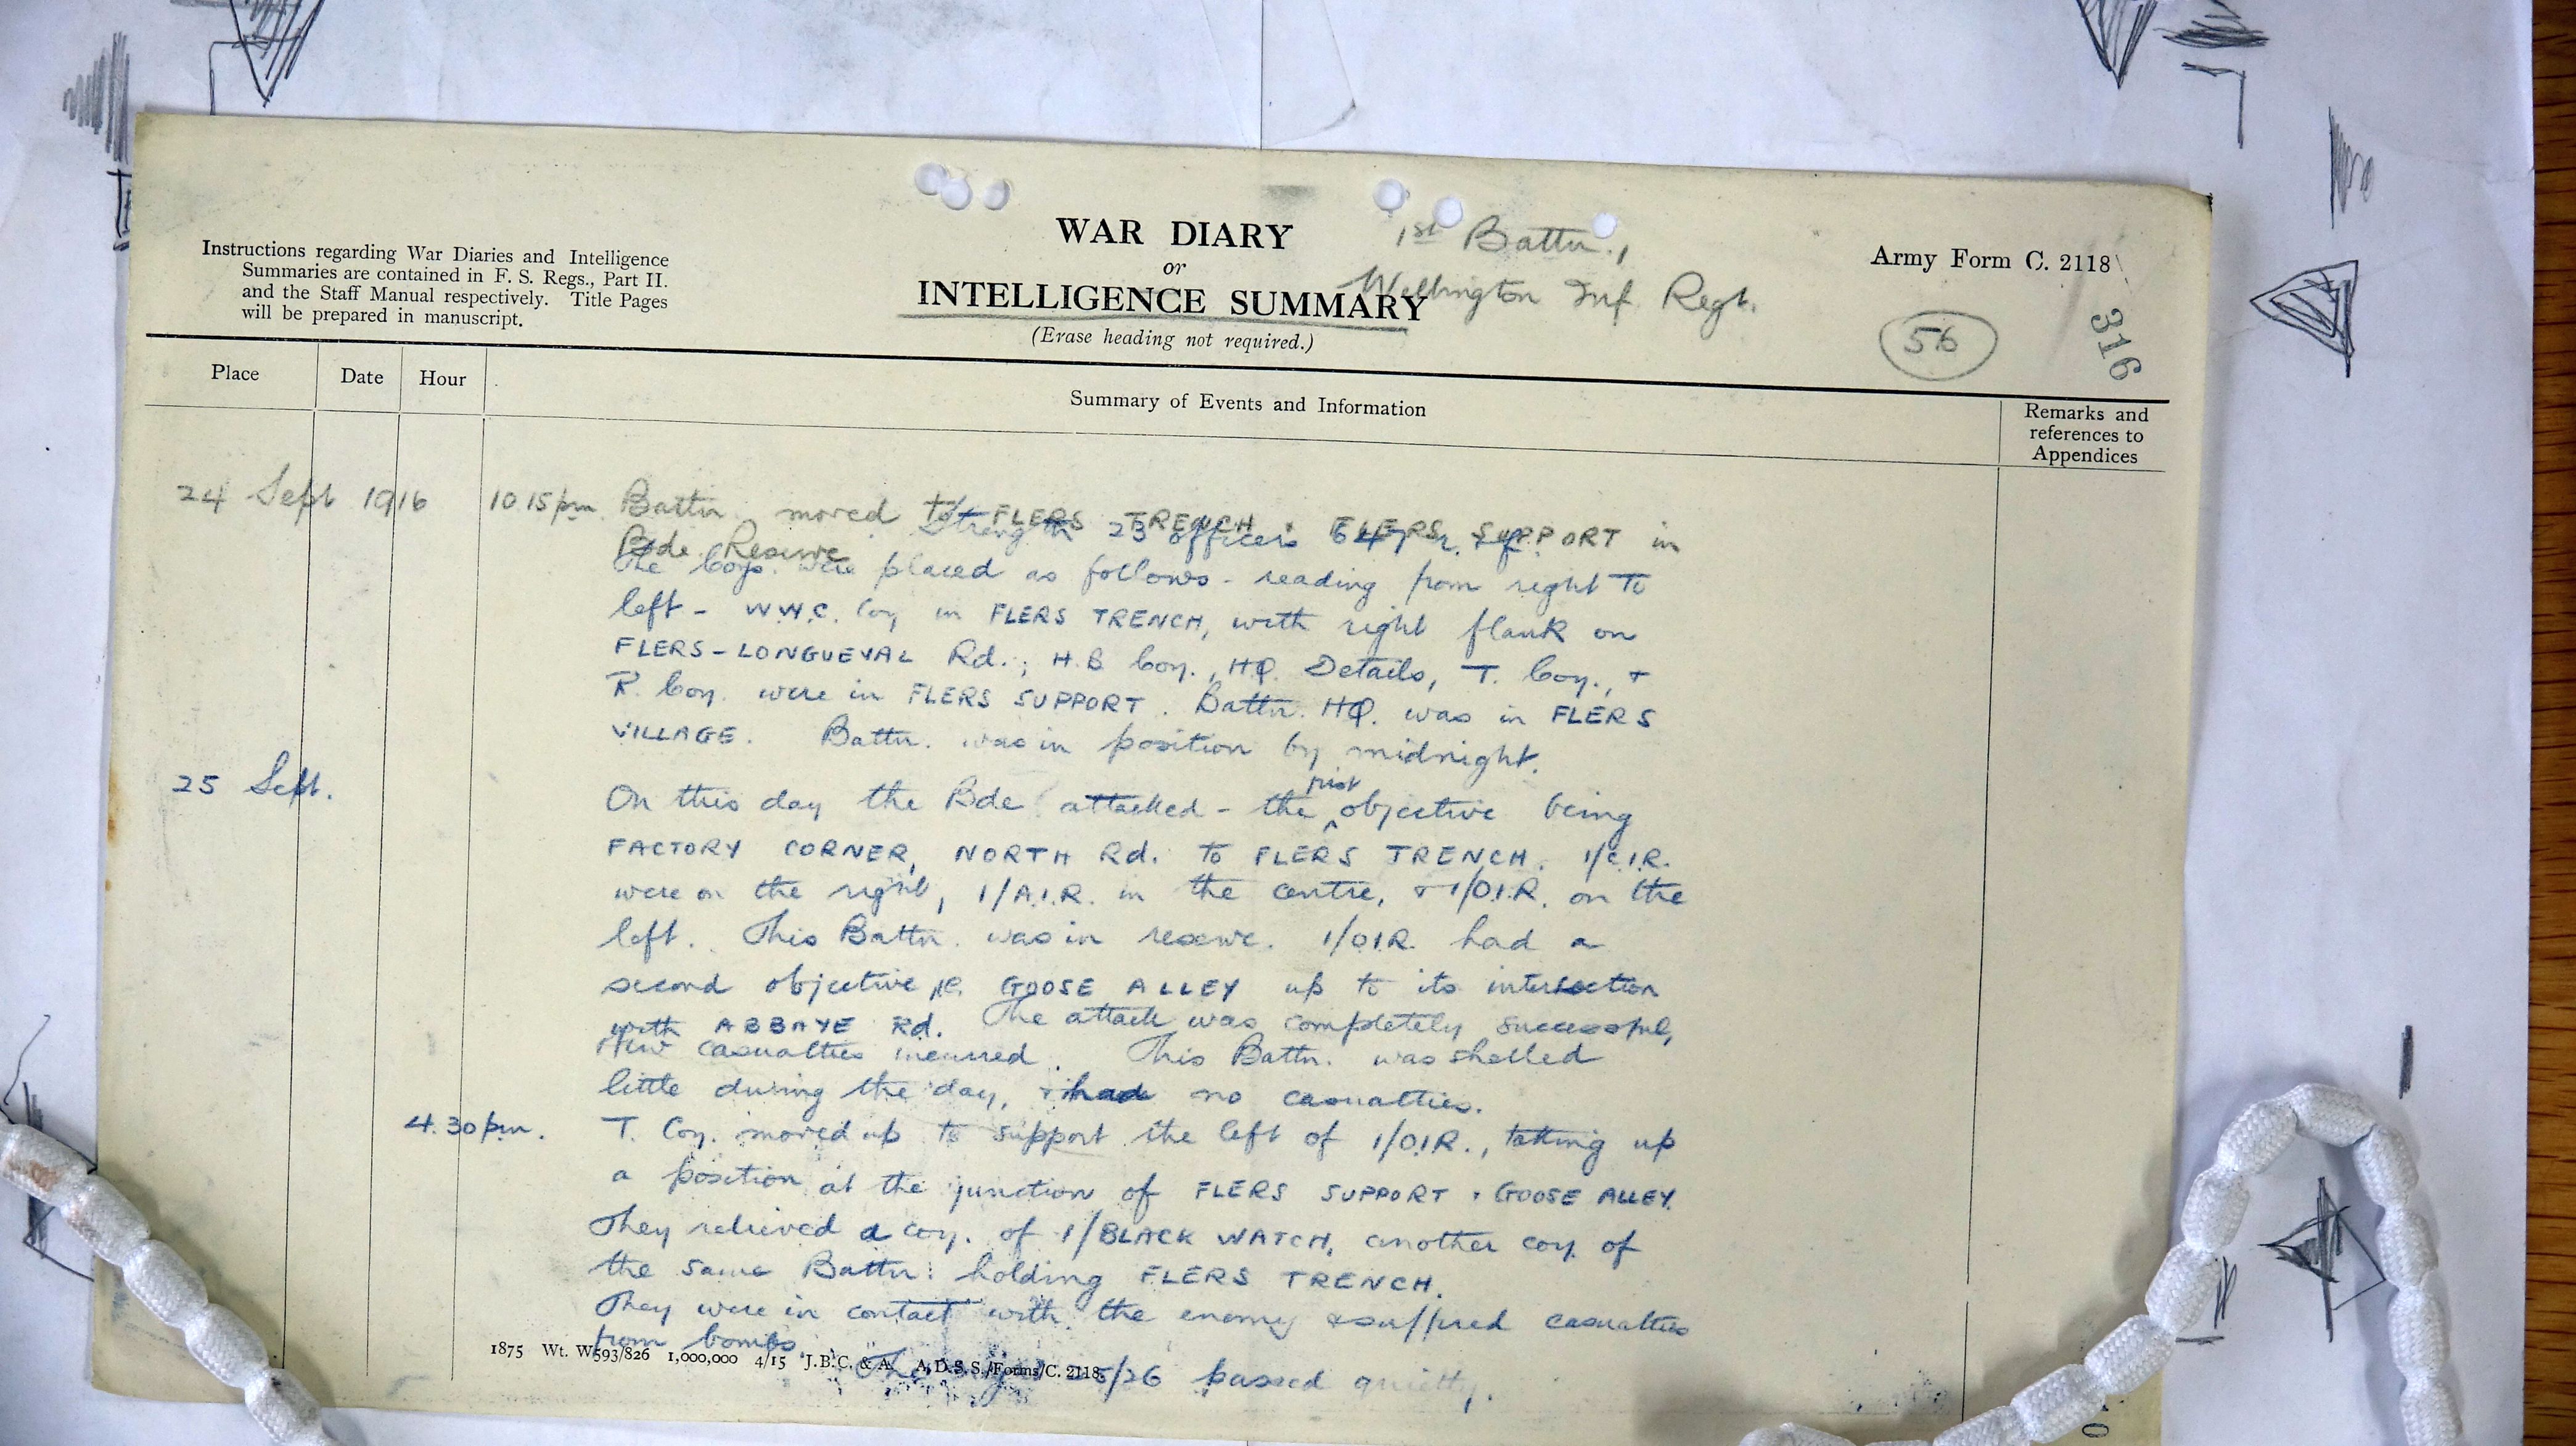 Instructions regarding War Diaries and Intelligence
Summaries are contained in F. S. Regs., Part II.
and the Staff Manual respectively. Title Pages
will be prepared in manuscript.
WAR DIARY
or
INTELLIGENCE SUMMARY
(Erase heading not required.)
1st Battn.,
Wellington Inf. Regt.
Army Form C. 2118
56
316
Place
Date
Hour
Summary of Events and Information
Remarks and
references to
Appendices
24 Sept 1916 10 15 pm. Battn. moved to FLERS TRENCH & FLERS SUPPORT in
Bde. Reserve. Strength 23 officers
The Coys. were placed as follows - reading from right to
left - W.W.C. Coy in FLERS TRENCH, with right flank on
FLERS-LONGUEVAL Rd.; H.B Coy., HQ. Details, T. Coy., &
R. Coy. were in FLERS SUPPORT. Battn. HQ. was in FLERS
VILLAGE. Battn. was in position by midnight.
25 Sept. On this day the Bde attacked - the first objective being
FACTORY CORNER, NORTH Rd. to FLERS TRENCH. 1/C.I.R.
were on the right, 1/A.I.R. in the centre, & 1/O.I.R. on the
left. This Battn. was in reserve. 1/O.I.R. had a
second objective, ie. GOOSE ALLEY up to its intersection
with ABBAYE Rd. The attack was completely successful,
few casualties incurred. This Battn. was shelled
little during the day, & had no casualties.
4.30 pm. T. Coy. moved up to support the left of 1/O.I.R., taking up
a position at the junction of FLERS SUPPORT & GOOSE ALLEY.
They relieved a coy. of 1/BLACK WATCH, another coy. of
the same Battn. holding FLERS TRENCH.
They were in contact with the enemy & suffered casualties
from bombs.
The 25/26 passed quietly.
1875 Wt. W593/826 1,000,000 4/15 J.B.C. & A. A.D.S.S./Forms/C. 2118.